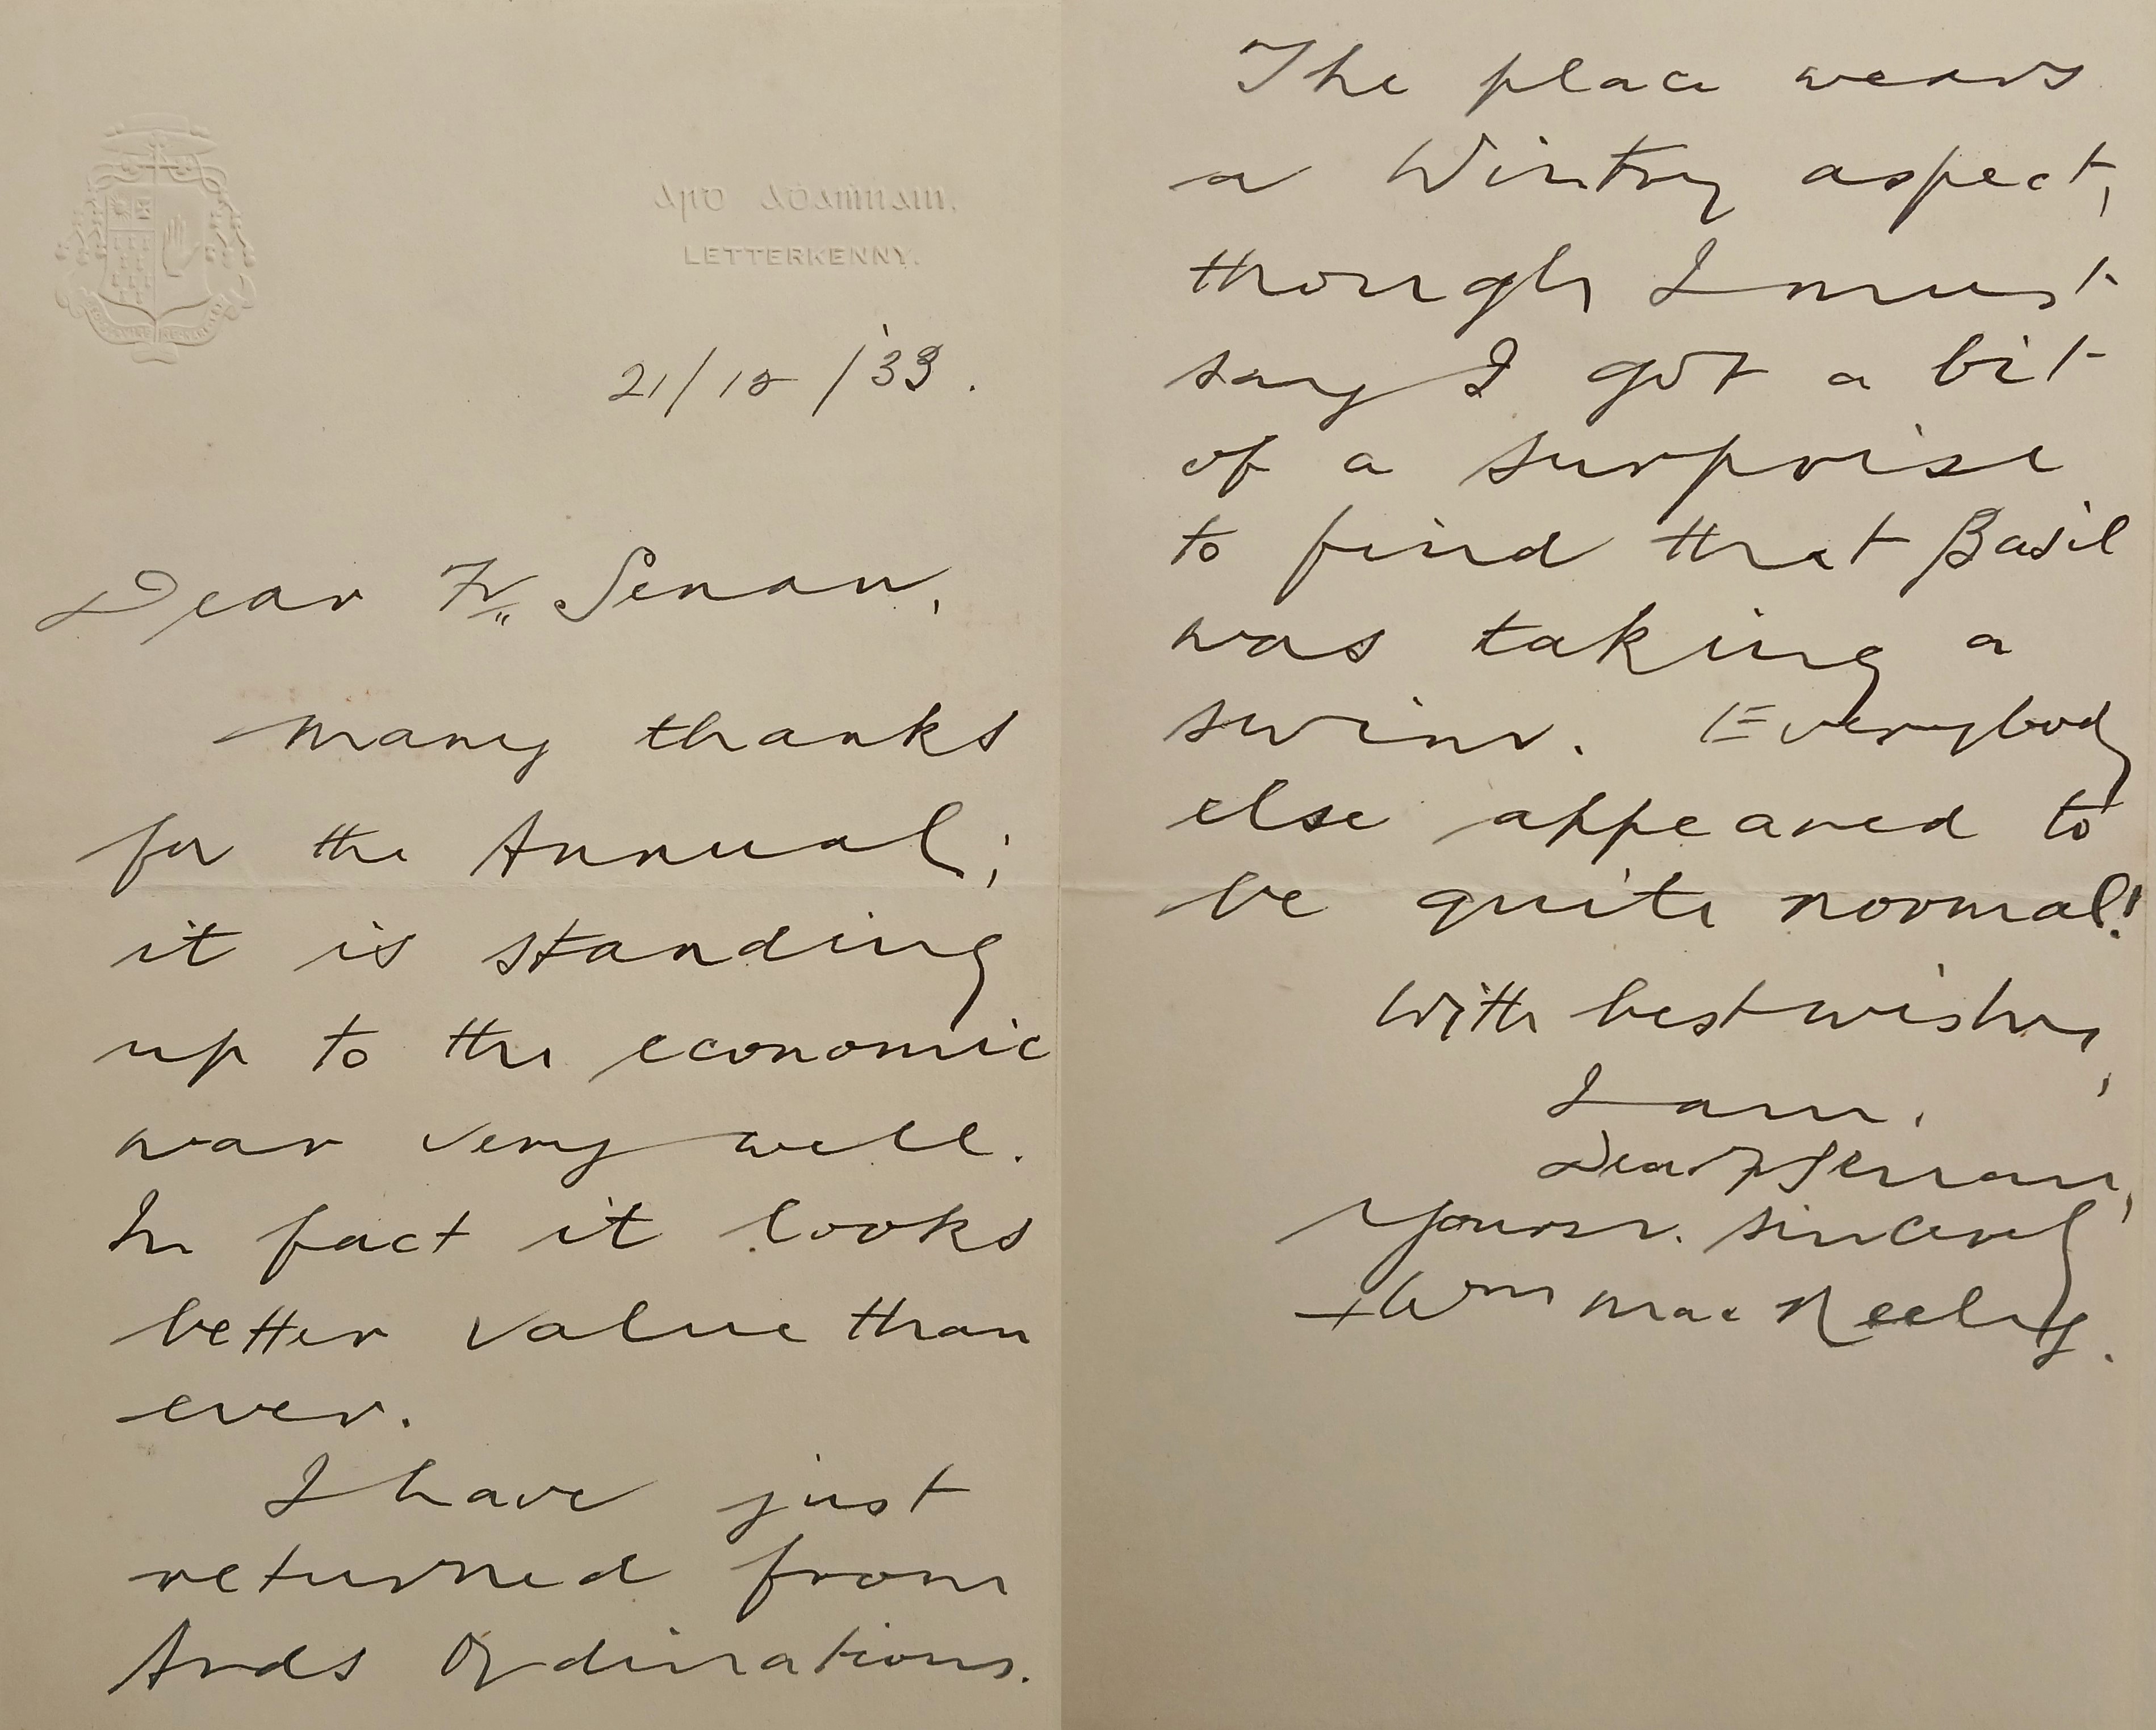 Ard Adhamhnain,
LETTERKENNY.
21/12/'33.
Dear Fr. Senan,
Many thanks
for the Annual;
it is standing
up to the economic
war very well.
In fact it looks
better value than
ever.
I have just
returned from
Ards Ordinations.
The place wears
a Wintry aspect,
though I must
say I got a bit
of a surprise
to find that Basil
was taking a
swim. Everybody
else appeared to
be quite normal!
With best wishes,
I am,
Dear Fr Senan,
Yours sincerely
+ Wm Mac Neely.